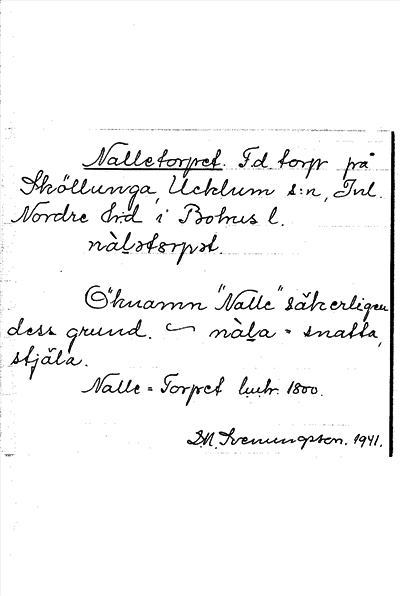 Nalletorpet. F.d. torp på
Sköllunga, Ucklum s:n, Inl.
Nordre hrd i Bohus l.
nàl̠ətɔrpət.
Öknamn "Nalle" säkerligen
dess grund. ~ nàl̠a = snatta,
stjäla.
Nalle = Torpet 1800.
Svenungsson. 1941.